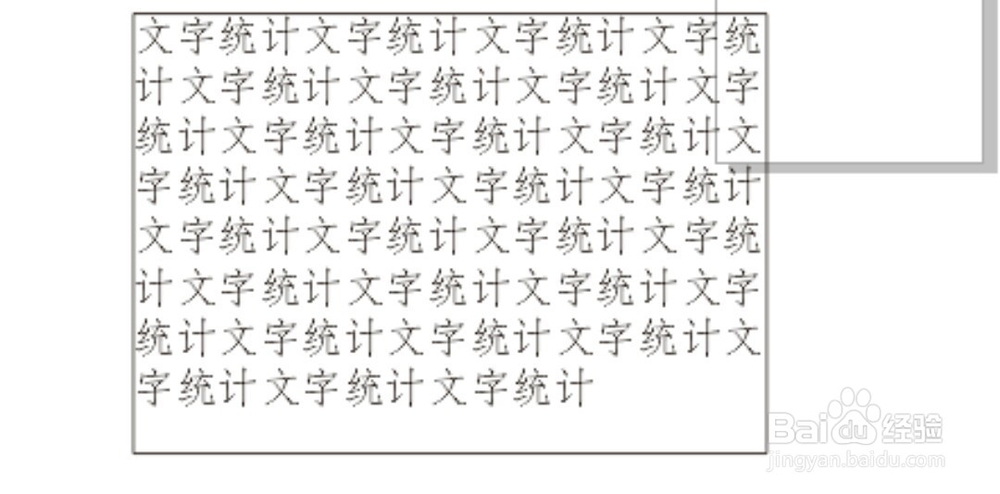 文字统计文字统计文字统计文字统
计文字统计文字统计文字统计文字
统计文字统计文字统计文字统计文
字统计文字统计文字统计文字统计
文字统计文字统计文字统计文字统
计文字统计文字统计文字统计文字
统计文字统计文字统计文字统计文
字统计文字统计文字统计
Baidu 经验
jingyan.baidu.com